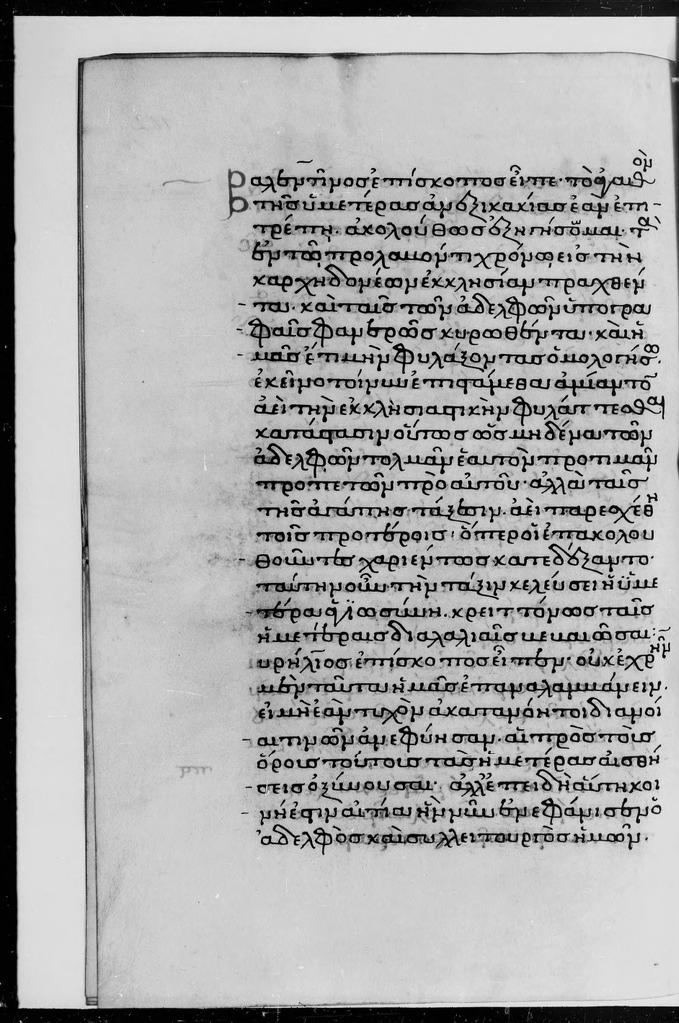 Βαλεντῖνος ἐπίσκοπος εἶπε· τὸ ἀγαθὸν
τῆς ὑμετέρας ἀνεξικακίας ἐὰν ἐπι-
τρέπῃ. ἀκολούθως ζητήσομαι· τὰ
ἐν τῶ προλαβόντι χρόνω εἰς τὴν
καρχηδονέων ἐκκλησίαν πραχθέν
-τα. καὶ ταῖς τῶν ἀδελφῶν ὑπογρα
-φαῖς φανερῶς κυρωθέντα· καὶ ἡ
-μᾶς ἔτι μὴν φυλάξοντας ὁμολογήσω.
ἐκεῖνο τοίνυν ἐπιστάμεθα ἀμίαντον
ἀεὶ τὴν ἐκκλησιαστικὴν φυλάττεσθαι
κατάστασιν οὕτως ὡς μηδένα τῶν
ἀδελφῶν τολμᾶν ἑαυτὸν προτιμᾶν
προπετῶν πρὸ αὐτοῦ· ἀλλὰ ταῖς
τῆς ἀγάπης τάξεσιν. ἀεὶ παρεσχέθη
τοῖς προτέροις· ὅπερ οἱ ἐπακολου
-θοῦντες χαριέντως κατεδέξαντο·
ταύτην οὖν τὴν τάξιν κελεύσει ἡ ὑμε
-τέρα ἁγιωσύνη. κρειττόνως ταῖς
ἡμετέραις διαλαλιαῖς νευρῶσαι:
υρήλιος ἐπίσκοπος εἶπεν· οὐκ ἐχρῆν
μὲν ταῦτα ἡμᾶς ἐπαναλαμβάνειν.
εἰ μὴ ἐὰν τυχὸν ἀκατανόητοι διάνοι
-αι τινῶν ἀνεφύησαν. αἳ πρὸς τοῖς
ὅροις τούτοις τὰς ἡμετέρας αἰσθή
-σεις ὀξύνουσαι· ἀλλ' ἐπειδὴ αὕτη κοι
-νή ἐστιν αἰτία ἣν νῦν ἐνεφάνισεν ὁ
ἀδελφὸς καὶ συλλειτουργὸς ἡμῶν.